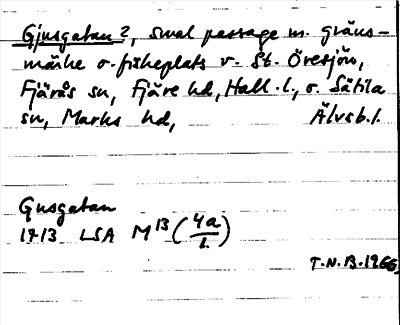 Gjusgatan ?, smal passage m. gräns-
märke o. fiskeplats v. St. Öresjön,
Fjärås sn, Fjäre hd, Hall. l., o. Sätila
sn, Marks hd, Älvsb. l.
Gusgatan
1713 LSA M13 (4a/1)
T.N.B. 1966